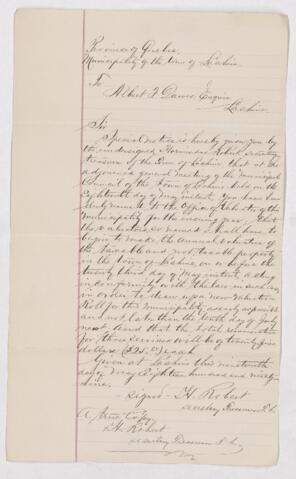 Province of Quebec
Municipality of the town of Lachine
To
Albert J Dawes, Esquire
Lachine
Sir
Special notice is hereby given you by
the undersigned Hormisdas Robert secretary
treasurer of the Town of Lachine that at the
adjourned general meeting of the Municipal
Council of the Town of Lachine held on the
Eighteenth day of May instant, you have been
duly named to the Office of Valuator of the
Municipality for the ensuing year. That
the valuators, so named shall have to
begin to make the annual valuation of
the taxable and non taxable property
in the town of Lachine, on or before the
twenty third day of May instant acting
in conformity with the law in such case
in order to draw up a new Valuation
Roll for this municipality as early as possible
and not later than the tenth day of July
next And that the total remuneration
for those services will be of twenty five
dollars ($25.00) each
Given at Lachine this nineteenth
day of May Eighteen hundred and ninety
nine.
signed H. Robert
secretary Treasurer T. L.
A true Copy
H. Robert
secretary Treasurer T. L.